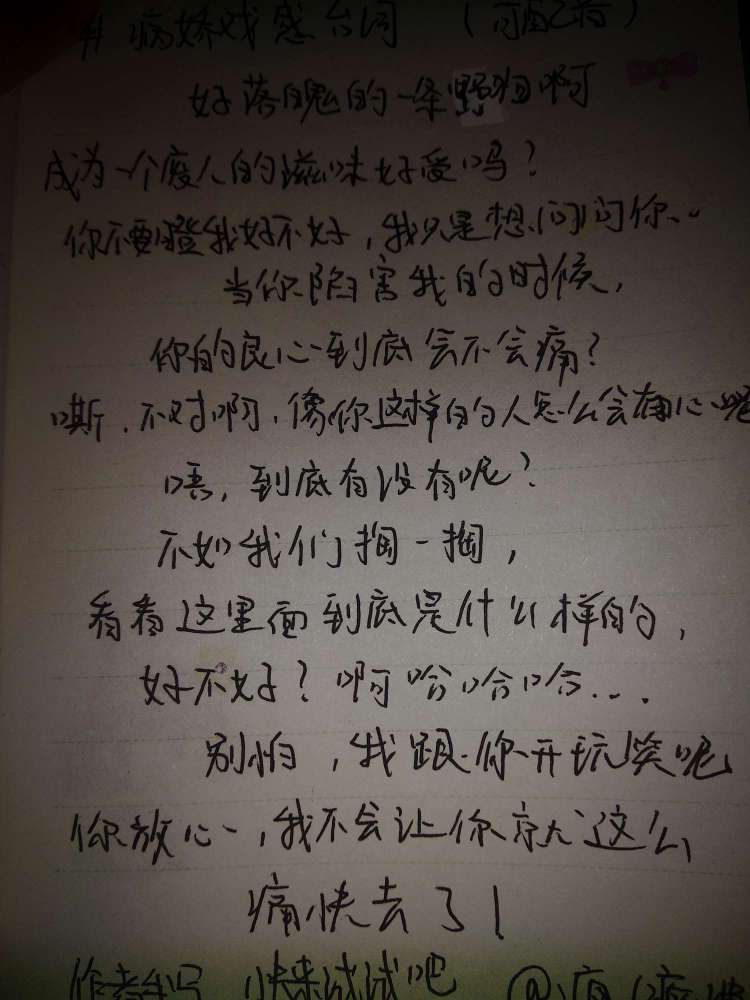 #病娇戏感台词 (可配音)
好落魄的一条野狗啊
成为一个废人的滋味好受吗?
你不要瞪我好不好,我只是想问问你..
当你陷害我的时候,
你的良心到底会不会痛?
嘶,不对啊,像你这样的人怎么会有心呢
唔,到底有没有呢?
不如我们掏一掏,
看看这里面到底是什么样的,
好不好?啊哈哈哈...
别怕,我跟你开玩笑呢
你放心,我不会让你就这么
痛快去了!
快来试试吧 @